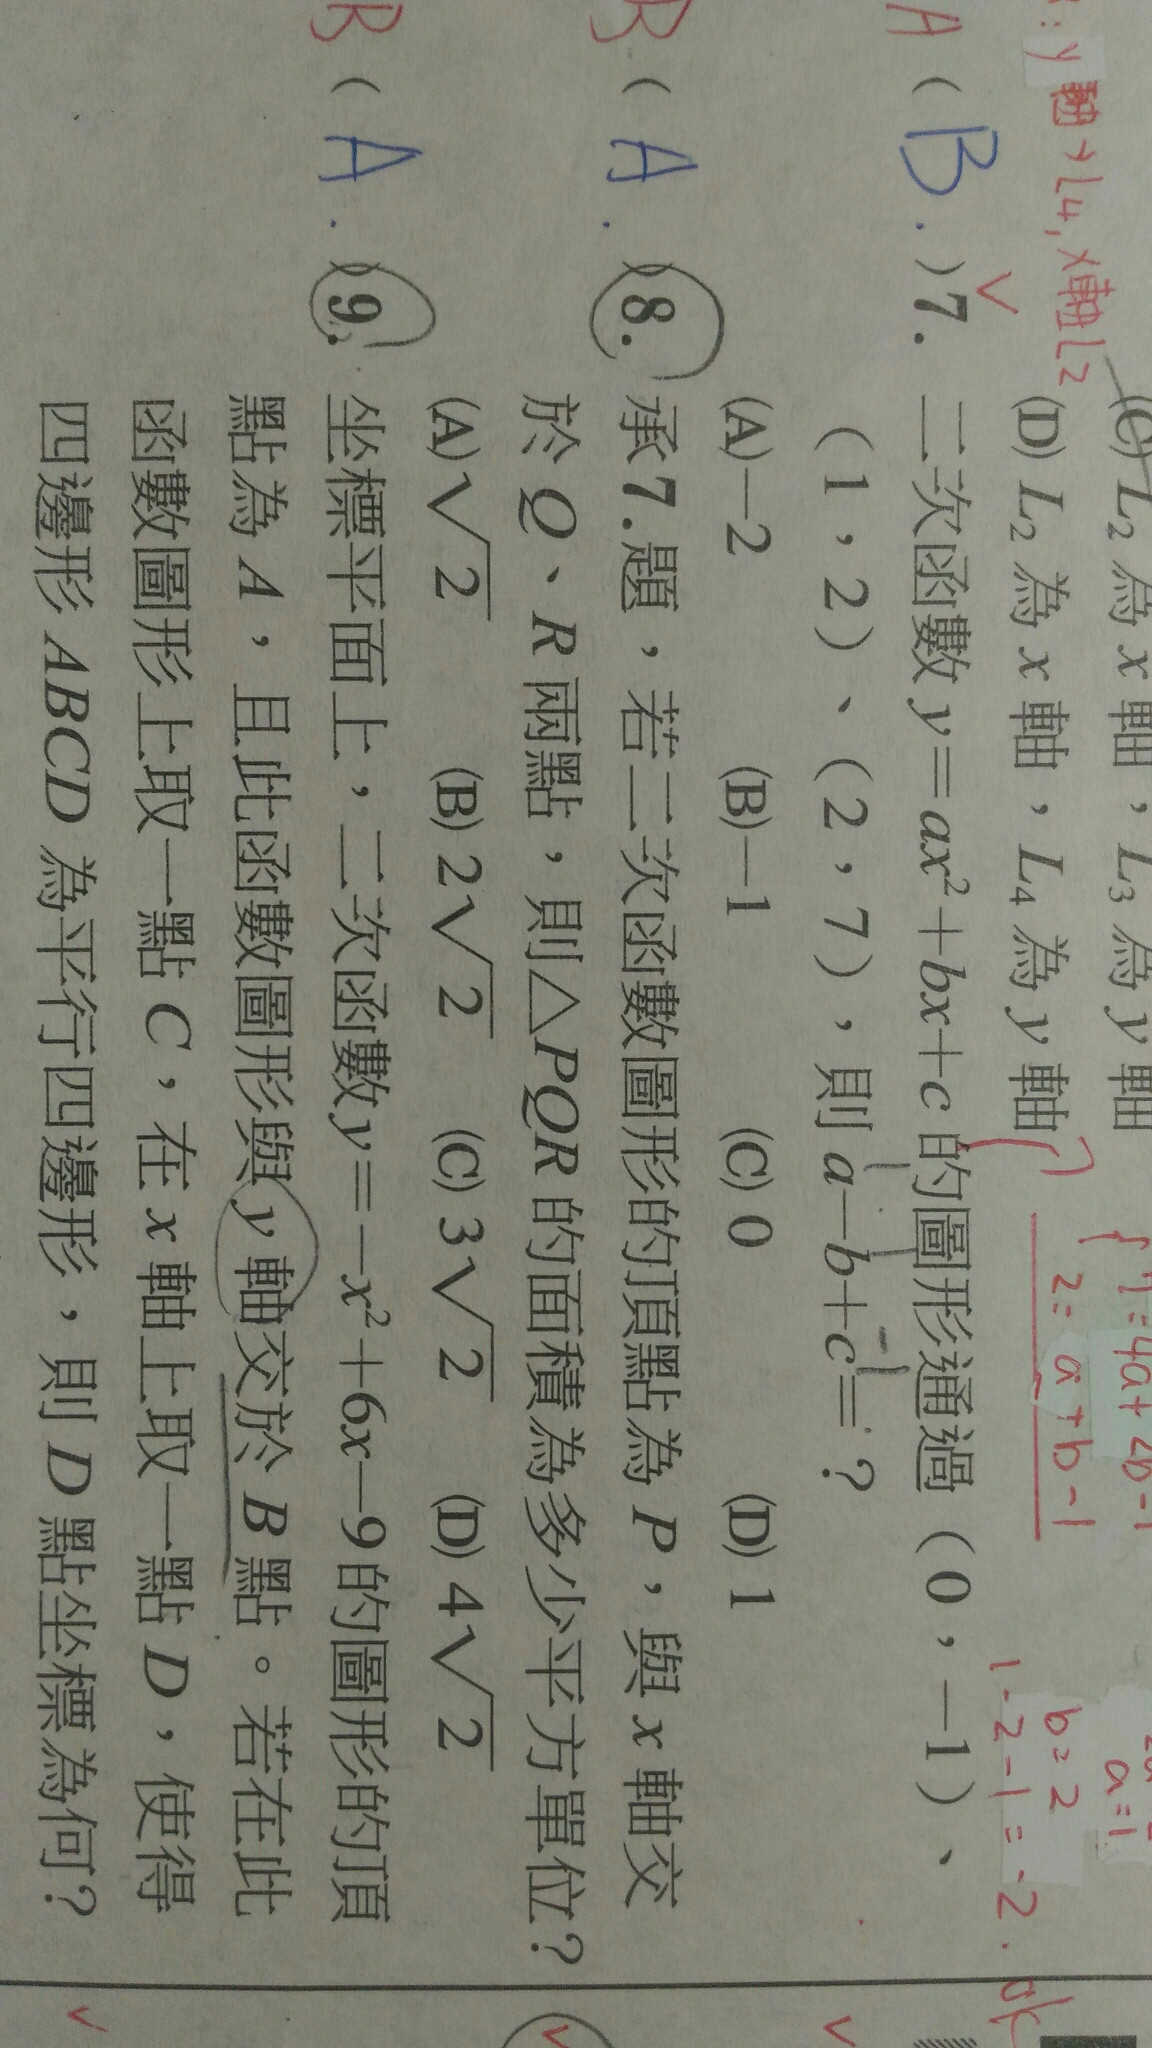 (C) L2 為 x 軸，L3 為 y 軸
(D) L2 為 x 軸，L4 為 y 軸
y 軸→L4, x軸L2
7=4a+2b-1
2=a+b-1
a=1
b=2
1-2-1=-2
A ( B. ) 7. 二次函數 y=ax²+bx+c 的圖形通過（0，－1）、
（1，2）、（2，7），則 a－b+c=？
(A)－2 (B)－1 (C) 0 (D) 1
B ( A. ) 8. 承 7.題，若二次函數圖形的頂點為 P，與 x 軸交
於 Q、R 兩點，則△PQR 的面積為多少平方單位？
(A) √2 (B) 2√2 (C) 3√2 (D) 4√2
B ( A. ) 9. 坐標平面上，二次函數 y=－x²+6x－9 的圖形的頂
點為 A，且此函數圖形與 y 軸交於 B 點。若在此
函數圖形上取一點 C，在 x 軸上取一點 D，使得
四邊形 ABCD 為平行四邊形，則 D 點坐標為何？